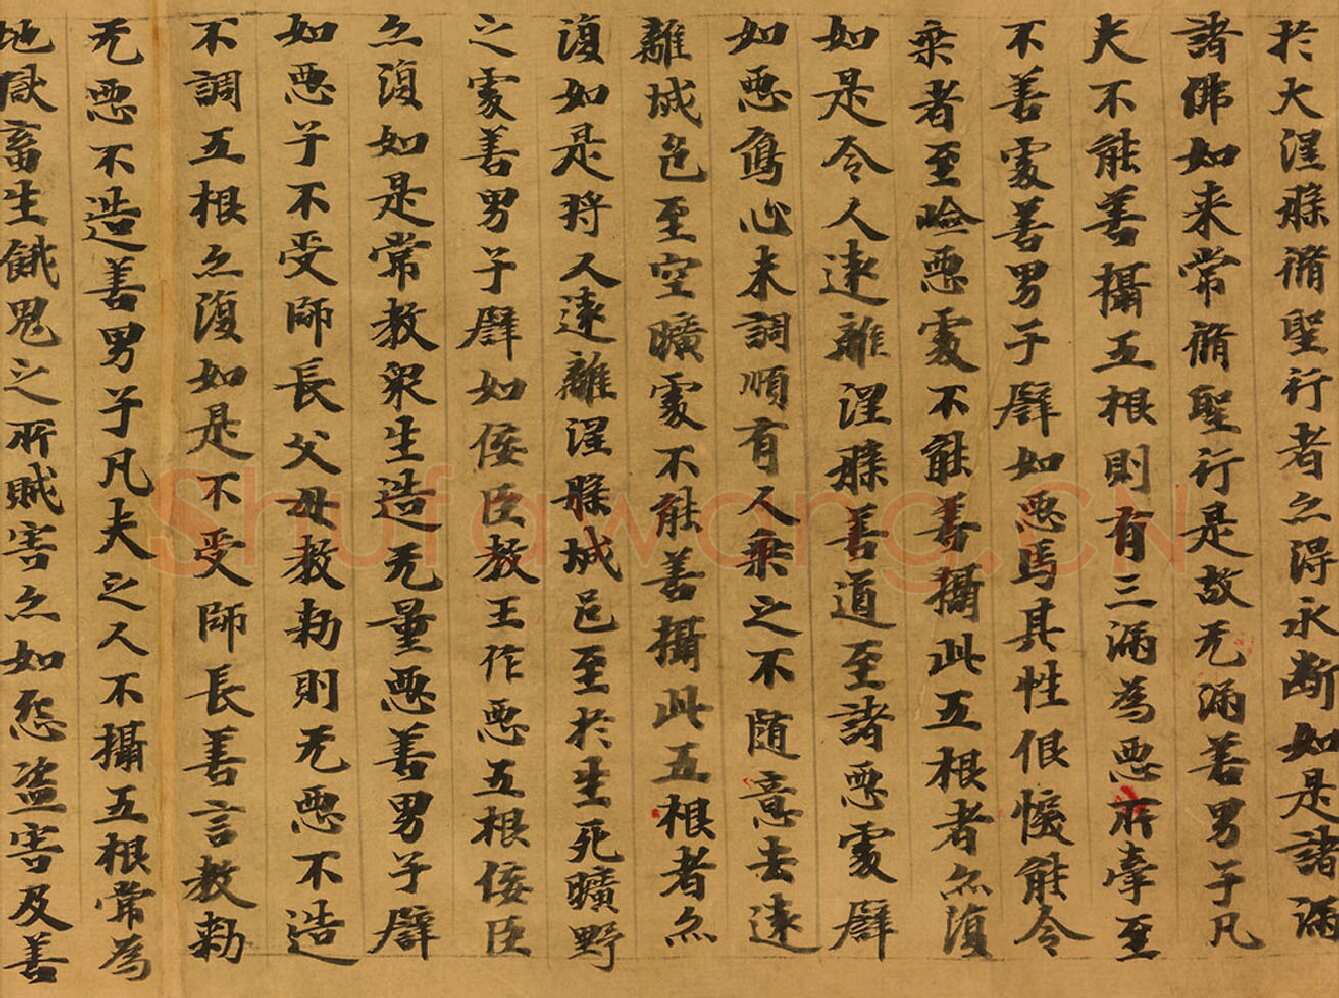 於大涅槃脩聖行者亦得永断如是諸漏
諸佛如来常脩聖行是故无漏善男子凡
夫不能善攝五根則有三漏為惡所牽至
不善處善男子譬如惡馬其性佷悷能令
乘者至嶮惡處不能善攝此五根者亦復
如是令人遠離涅槃善道至諸惡處譬
如惡象心未調順有人乘之不随意去遠
離城邑至空曠處不能善攝此五根者亦
復如是将人遠離涅槃城邑至於生死曠野
之處善男子譬如佞臣教王作惡五根佞臣
亦復如是常教衆生造无量惡善男子譬
如惡子不受師長父母教勑則无惡不造
不調五根亦復如是不受師長善言教勑
无惡不造善男子凡夫之人不攝五根常為
地獄畜生餓鬼之所賊害亦如怨盗害及善
Shufawang.CN